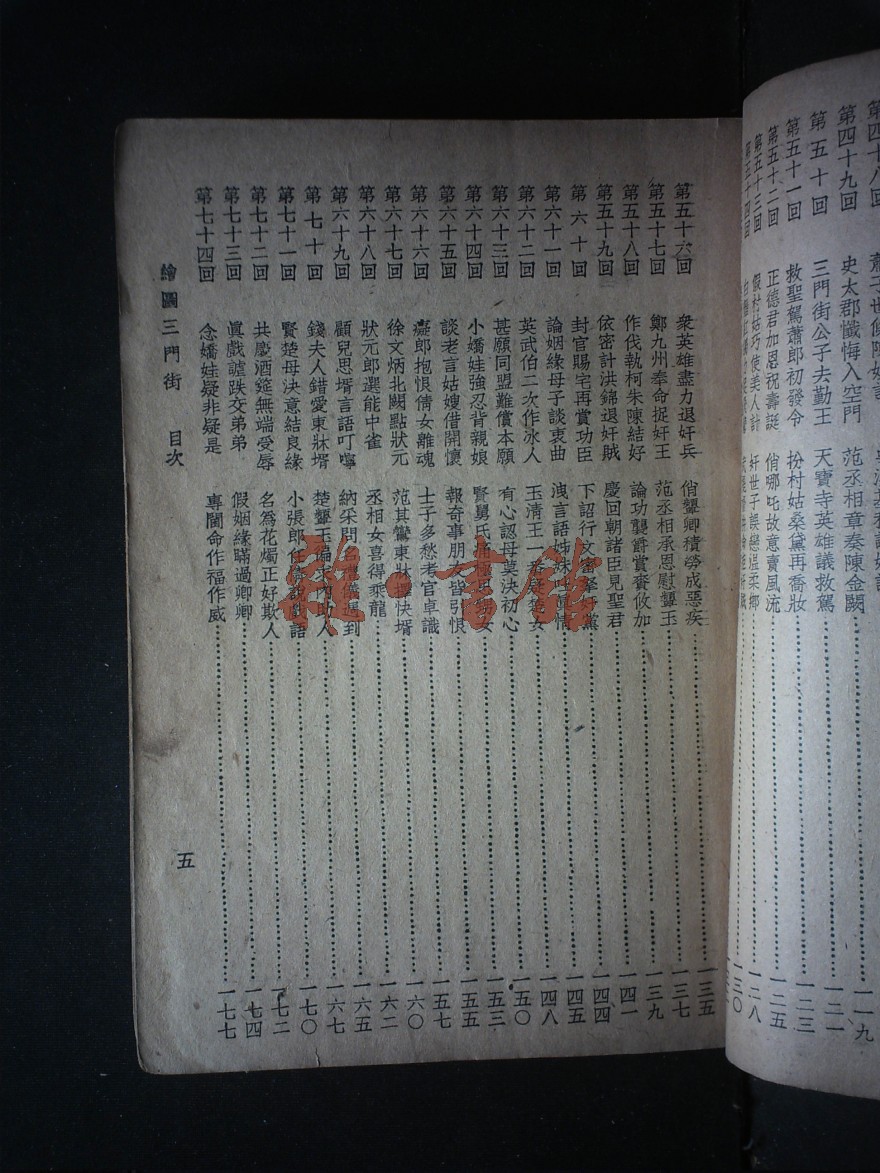 第四十八回
第四十九回 史太郡懺悔入空門 范丞相章奏陳金闕 一一九
第五十回 三門街公子去勤王 天寶寺英雄議救駕 一二一
第五十一回 救聖駕蕭郎初發令 扮村姑桑黛再喬妝 一二三
第五十二回 正德君加恩祝壽誕 俏哪吒故意賣風流 一二五
第五十三回 假村姑巧使美人計 奸世子誤戀溫柔鄉 一二八
第五十四回 一三〇
第五十六回 衆英雄盡力退奸兵 俏顰卿積勞成惡疾 一三五
第五十七回 鄭九州奉命捉奸王 范丞相承恩慰顰玉 一三七
第五十八回 作伐執柯朱陳結好 論功襲爵賞賚攸加 一三九
第五十九回 依密計洪錦退奸賊 慶回朝諸臣見聖君 一四一
第六十回 封官賜宅再賞功臣 下詔行文 黨 一四四
第六十一回 論姻緣母子談衷曲 洩言語姊妹 情 一四五
第六十二回 英武伯二次作冰人 玉清王一番疑楚女 一四八
第六十三回 甚願同盟難償本願 有心認母莫決初心 一五〇
第六十四回 小嬌娃強忍背親娘 賢舅氏痛極思 女 一五三
第六十五回 談老言姑嫂借開懷 報奇事朋友皆引恨 一五五
第六十六回 癡郎抱恨倩女離魂 士子多愁考官卓識 一五七
第六十七回 徐文炳北闕點狀元 范其鸞東牀擇快壻 一六〇
第六十八回 狀元郎選能中雀 丞相女喜得乘龍 一六二
第六十九回 顧兒思壻言語叮嚀 納采問名禮儀週到 一六五
第七十回 錢夫人錯愛東牀壻 楚顰玉 人 一六七
第七十一回 賢楚母決意結良緣 小張郎任意說戲語 一七〇
第七十二回 共慶酒筵無端受辱 名爲花燭正好欺人 一七二
第七十三回 眞戲謔跌交弟弟 假姻緣瞞過卿卿 一七四
第七十四回 念嬌娃疑非疑是 專閫命作福作威 一七七
繪圖三門街 目次
五
書館